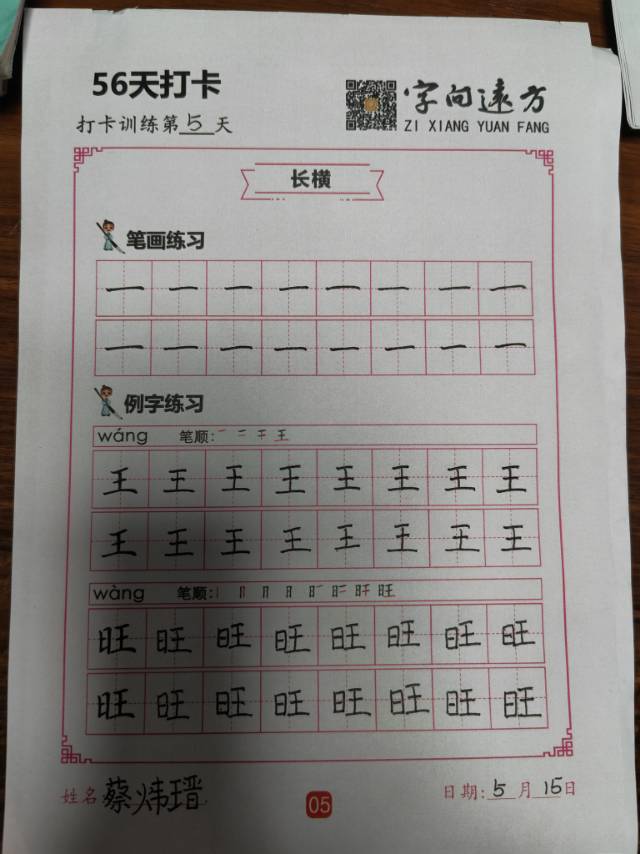 56天打卡
字向远方
打卡训练第5天
ZI XIANG YUAN FANG
长横
笔画练习
一 一 一 一 一 一 一 一
一 一 一 一 一 一 一 一
例字练习
wáng 笔顺: 一 二 干 王
王 王 王 王 王 王 王 王
王 王 王 王 王 王 王 王
wàng 笔顺: 丨 冂 日 日 旺
旺 旺 旺 旺 旺 旺 旺 旺
旺 旺 旺 旺 旺 旺 旺 旺
姓名 蔡炜瑨
05
日期: 5 月 15 日